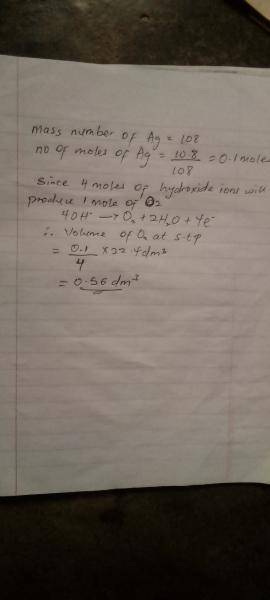 mass number of Ag = 108
no of moles of Ag = 10.8/108 = 0.1 mole
Since 4 moles of hydroxide ions will
produce 1 mole of O2
4OH⁻ → O₂ + 2H₂O + 4e⁻
∴ Volume of O₂ at s.t.p
= 0.1/4 × 22.4 dm³
= 0.56 dm³